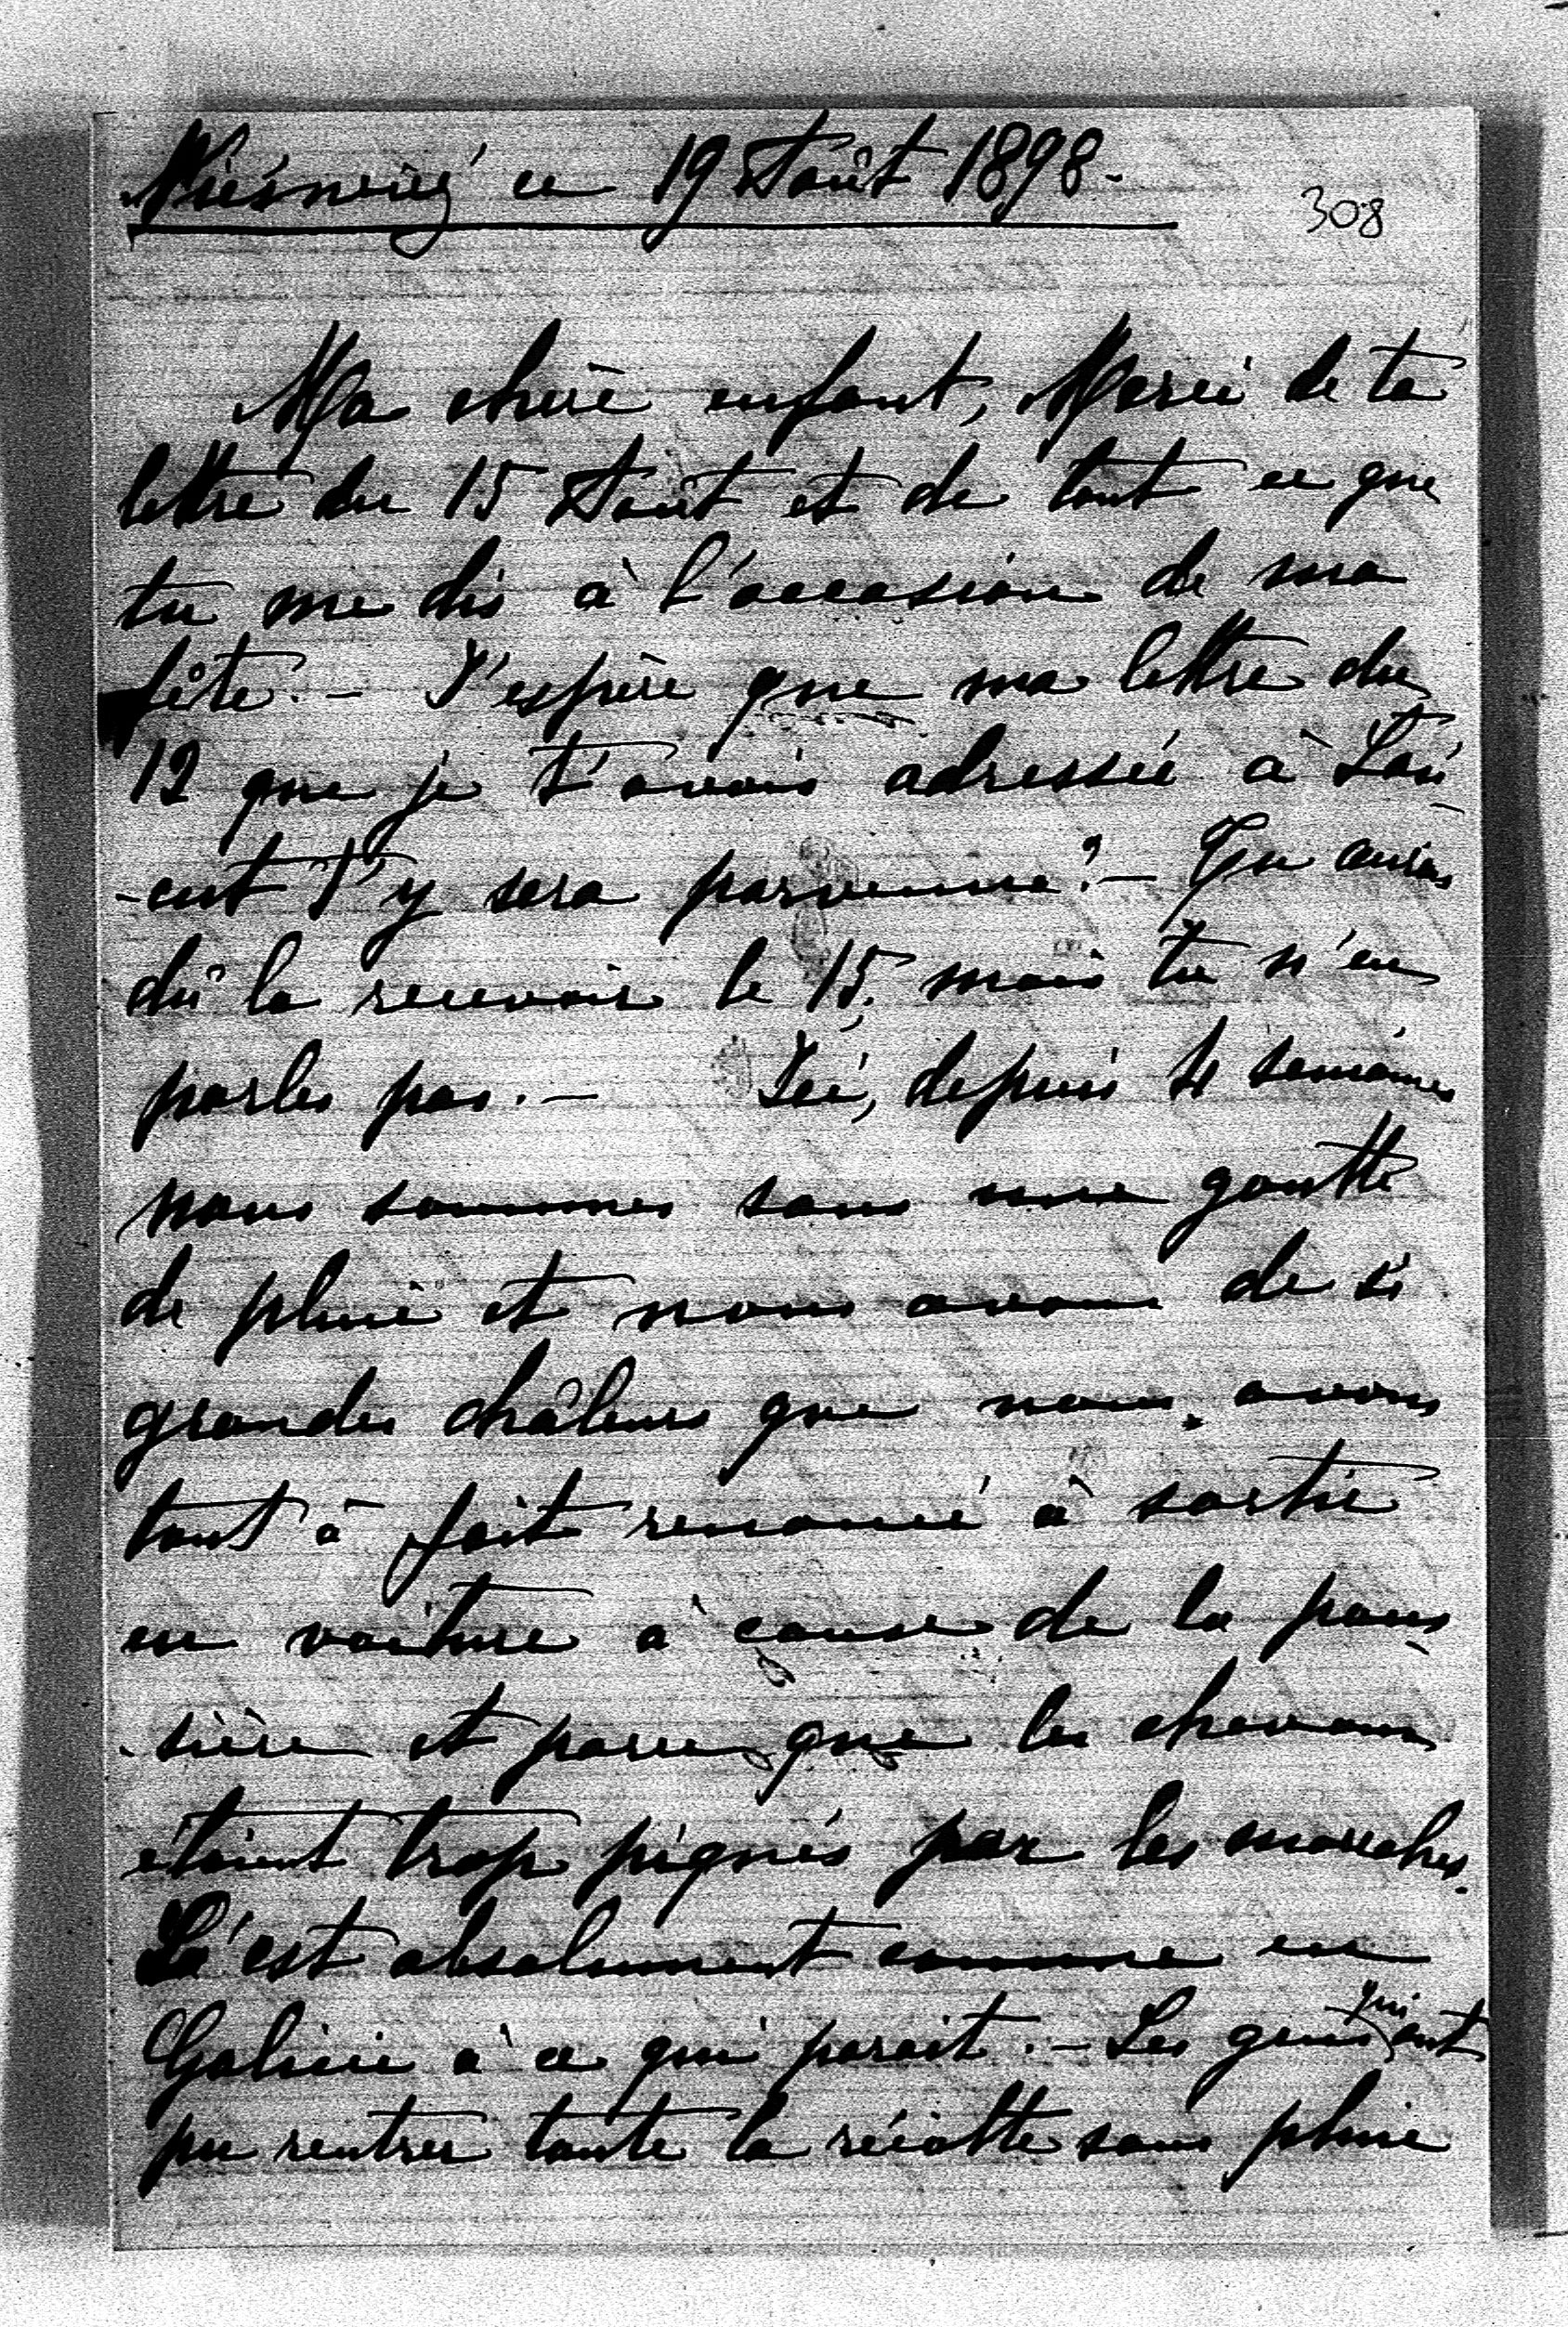 ce 19 Août 1898.-
308
Ma chère enfant, Merci de ta
lettre du 15 Août et de tout ce que
tu me dis à l'occasion de ma
fête. - J'espère que ma lettre du
12 que je t'avais adressée à Lan
-cut t'y sera parvenue? - Tu aurais
dû la recevoir le 15, mais tu n'en
parles pas. - Ici, depuis 4 semaines
nous sommes sans une goutte
de pluie et nous avons de si
grandes châleurs que nous avons
tout à fait renoncé à sortir
en voiture à cause de la pous
-sière et parce que les chevaux
étaient trop piqués par les mouches.
C'est absolument comme en
Galicie à ce qui parait. - Les gens qui ont
pu rentrer toute la récolte sans pluie